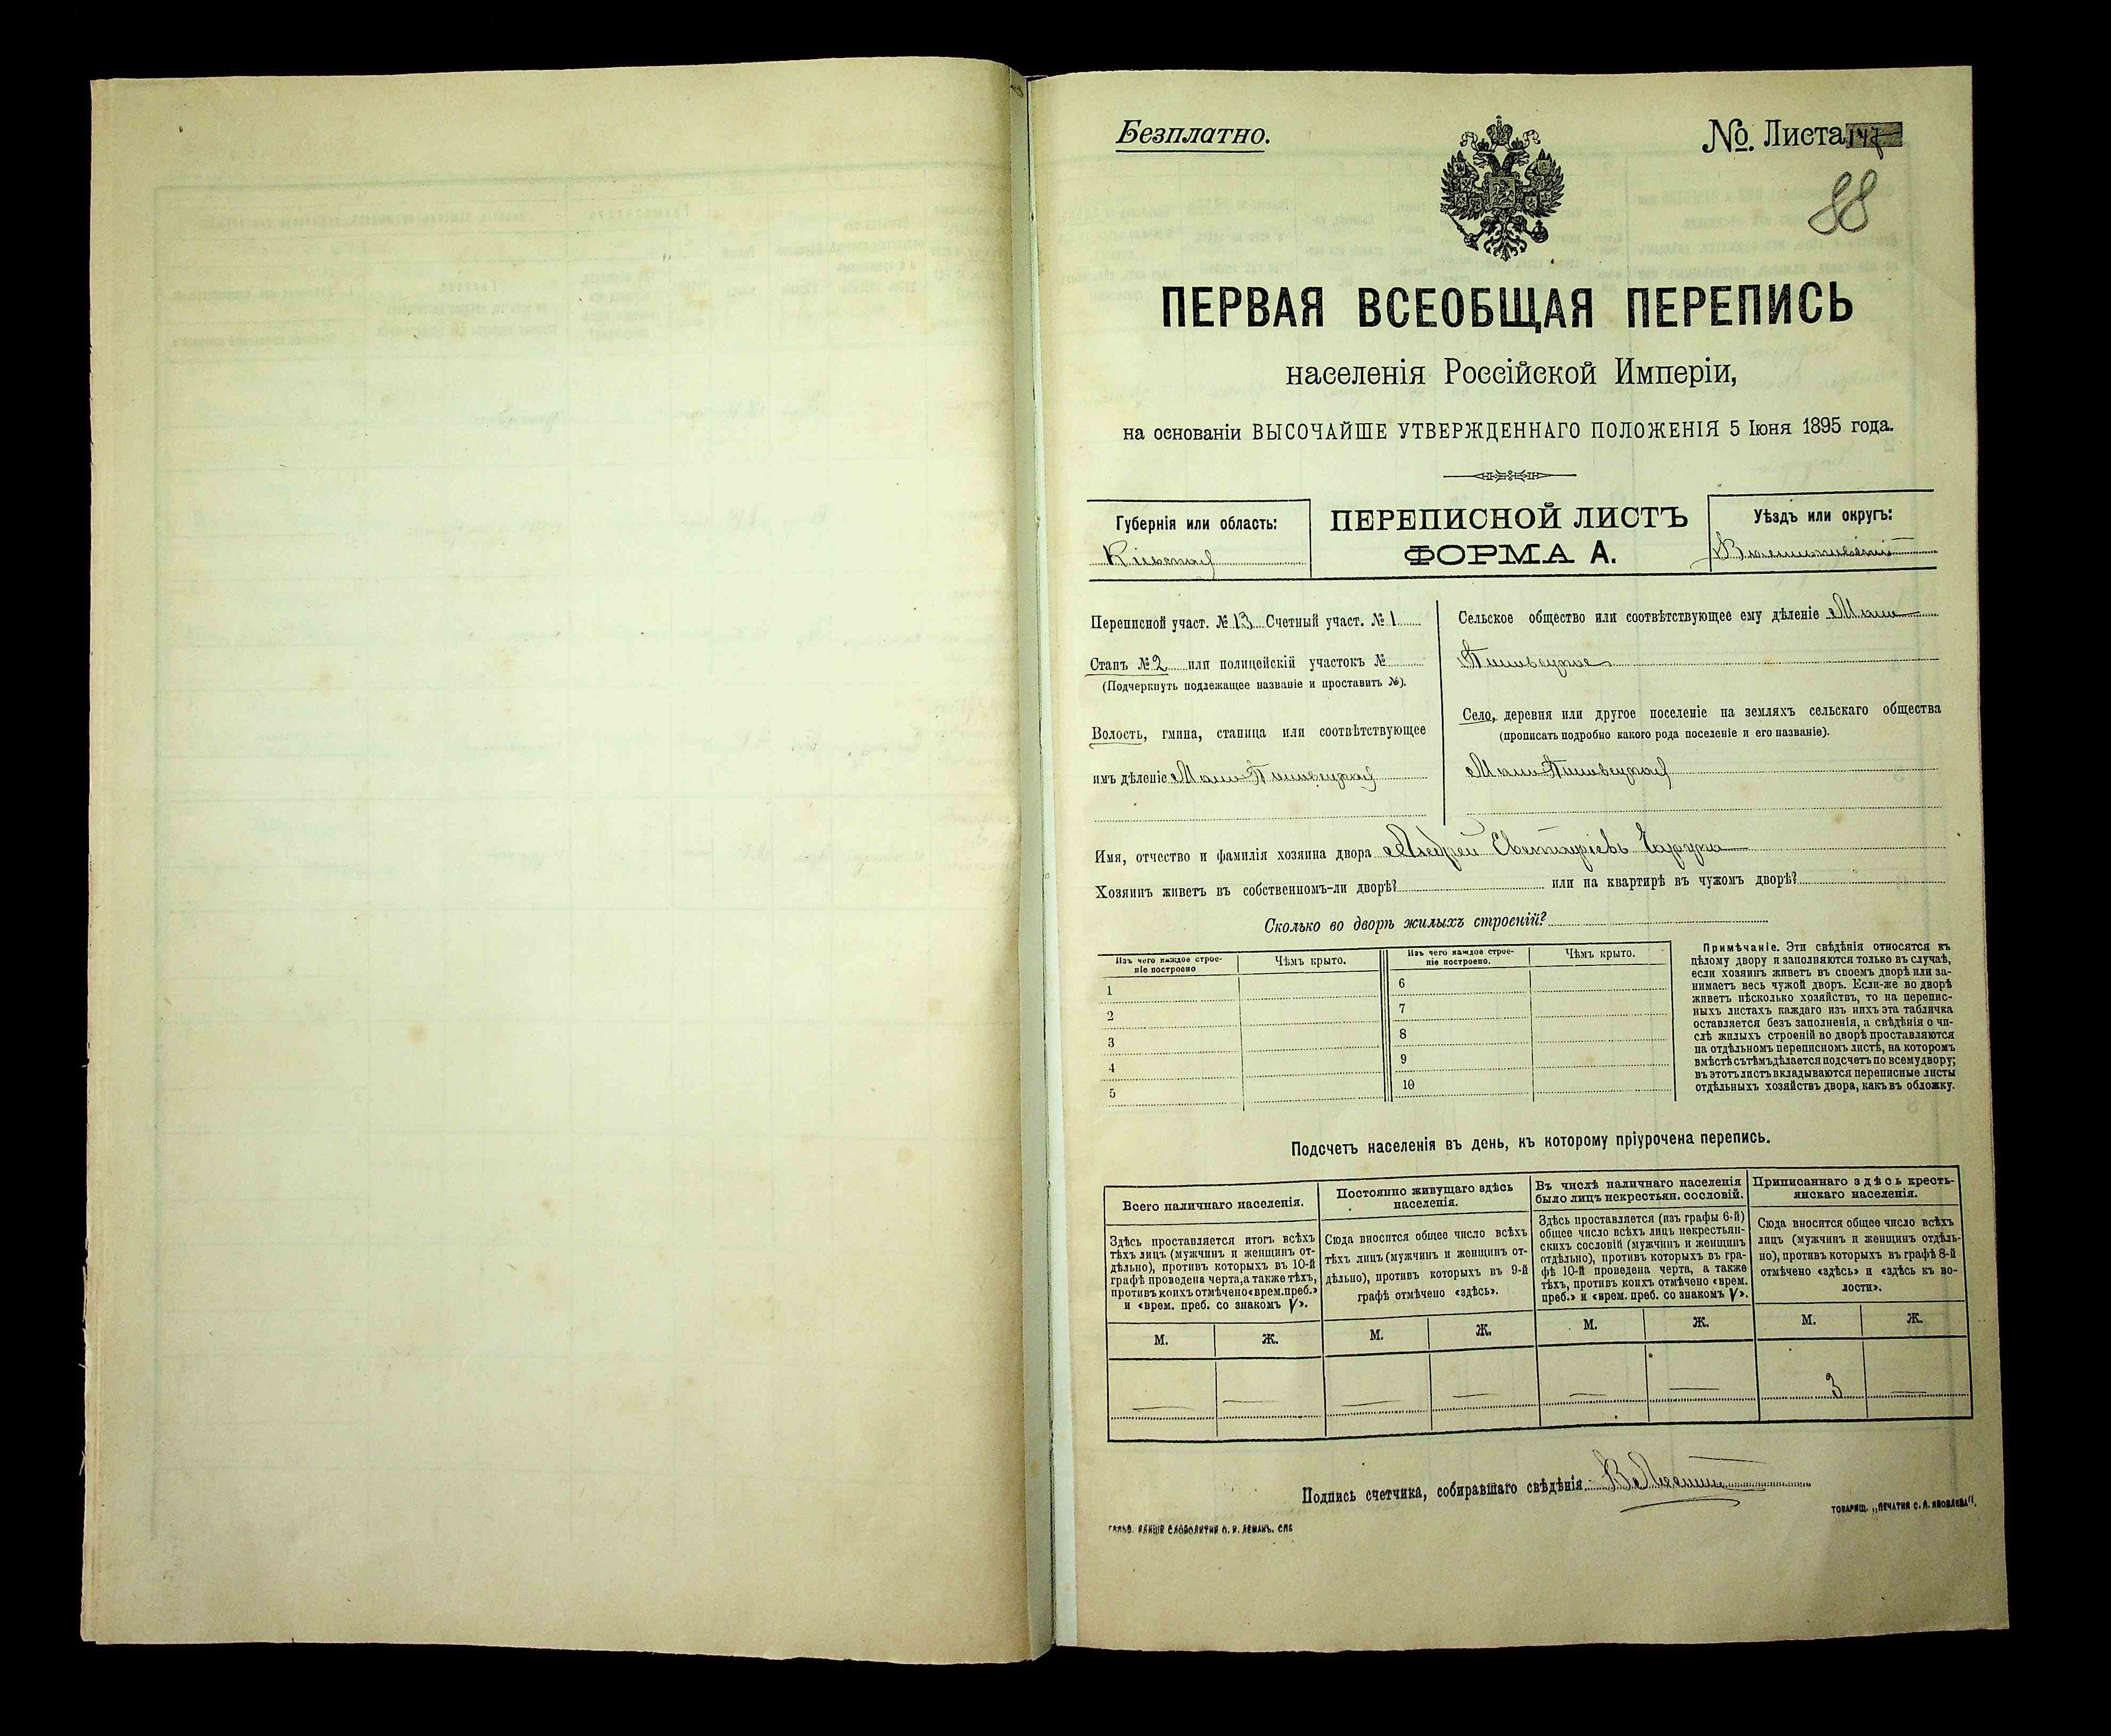 Безплатно.
№. Листа 147
88
ПЕРВАЯ ВСЕОБЩАЯ ПЕРЕПИСЬ
населенія Россійской Имперіи,
на основаніи ВЫСОЧАЙШЕ УТВЕРЖДЕННАГО ПОЛОЖЕНІЯ 5 Іюня 1895 года.
Губернія или область:
Кіевская
ПЕРЕПИСНОЙ ЛИСТЪ
ФОРМА А.
Уѣздъ или округъ:
Переписной участ. № 13 Счетный участ. № 1
Станъ № 2 или полицейскій участокъ №
(Подчеркнуть подлежащее названіе и проставить №).
Волость, гмина, станица или соотвѣтствующее
имъ дѣленіе
Сельское общество или соотвѣтствующее ему дѣленіе
Село, деревня или другое поселеніе на земляхъ сельскаго общества
(прописать подробно какого рода поселеніе и его названіе).
Имя, отчество и фамилія хозяина двора Андрей
Хозяинъ живетъ въ собственномъ-ли дворѣ? или на квартирѣ въ чужомъ дворѣ?
Сколько во дворѣ жилыхъ строеній?
Изъ чего каждое строе-
ніе построено
Чѣмъ крыто.
1
2
3
4
5
Изъ чего каждое строе-
ніе построено.
Чѣмъ крыто.
6
7
8
9
10
Примѣчаніе. Эти свѣдѣнія относятся къ
цѣлому двору и заполняются только въ случаѣ,
если хозяинъ живетъ въ своемъ дворѣ или за-
нимаетъ весь чужой дворъ. Если-же во дворѣ
живетъ нѣсколько хозяйствъ, то на перепис-
ныхъ листахъ каждаго изъ нихъ эта табличка
оставляется безъ заполненія, а свѣдѣнія о чи-
слѣ жилыхъ строеній во дворѣ проставляются
на отдѣльномъ переписномъ листѣ, на которомъ
вмѣстѣ сътѣмъ дѣлается подсчетъ по всему двору;
въ этотъ листъ вкладываются переписные листы
отдѣльныхъ хозяйствъ двора, какъ въ обложку.
Подсчетъ населенія въ день, къ которому пріурочена перепись.
Всего наличнаго населенія.
Здѣсь проставляется итогъ всѣхъ
тѣхъ лицъ (мужчинъ и женщинъ от-
дѣльно), противъ которыхъ въ 10-й
графѣ проведена черта, а также тѣхъ,
противъ коихъ отмѣчено «врем. преб.»
и «врем. преб. со знакомъ V».
М. Ж.
— —
Постоянно живущаго здѣсь
населенія.
Сюда вносится общее число всѣхъ
тѣхъ лицъ (мужчинъ и женщинъ от-
дѣльно), противъ которыхъ въ 9-й
графѣ отмѣчено «здѣсь».
М. Ж.
— —
Въ числѣ наличнаго населенія
было лицъ некрестьян. сословій.
Здѣсь проставляется (изъ графы 6-й)
общее число всѣхъ лицъ некрестьян-
скихъ сословій (мужчинъ и женщинъ
отдѣльно), противъ которыхъ въ гра-
фѣ 10-й проведена черта, а также
тѣхъ, противъ коихъ отмѣчено «врем.
преб.» и «врем. преб. со знакомъ V».
М. Ж.
— —
Приписаннаго здѣсь кресть-
янскаго населенія.
Сюда вносится общее число всѣхъ
лицъ (мужчинъ и женщинъ отдѣль-
но), противъ которыхъ въ графѣ 8-й
отмѣчено «здѣсь» и «здѣсь къ во-
лости».
М. Ж.
3 —
Подпись счетчика, собиравшаго свѣдѣнія
ТОВАРИЩ. „ПЕЧАТНЯ С. П. ЯКОВЛЕВА".
СЛОВОЛИТНЯ О. И. ЛЕМАНЪ. СПБ